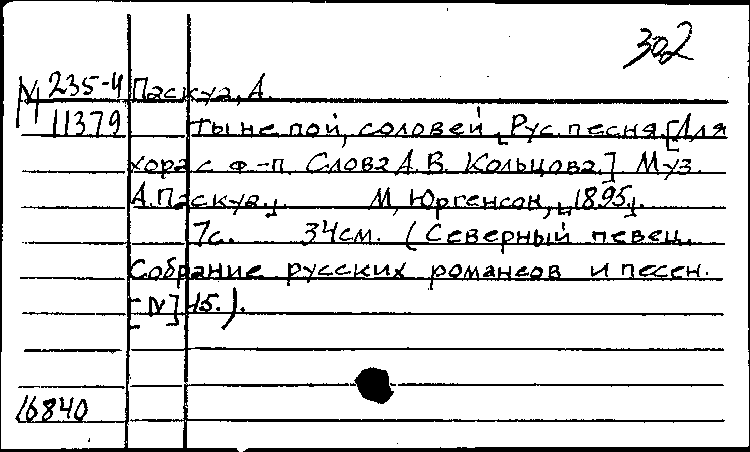 302
М 235-4 Паскуа, А.
11379 Ты не пой, соловей. Рус. песня. [Для
хора с ф.-п. Слова А. В. Кольцова.] Муз.
А. Паскуа. М., Юргенсон, [1895].
7с. 34см. (Северный певец.
Собрание русских романсов и песен.
[N] 15.).
16840